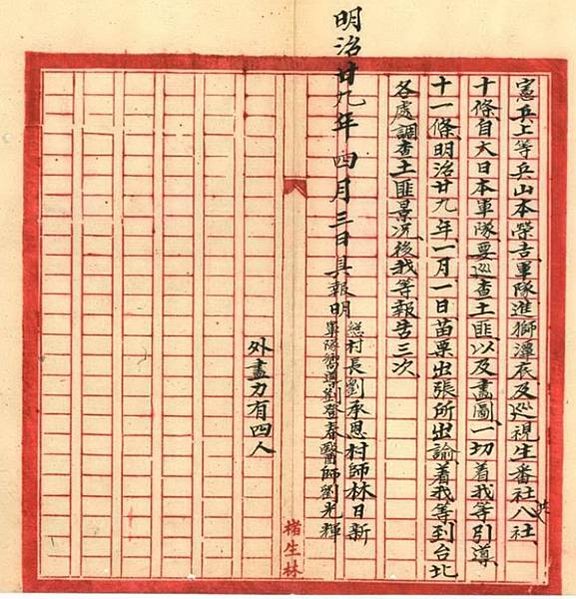 憲兵上等兵山本榮吉軍隊進獅潭底及巡視生番社共八社、
十條自大日本軍隊要巡查土匪以及畫圖、一切着我等引導、
十一條、明治廿九年一月一日苗栗出張所出諭、着我等到台北
各處調查土匪景况後我等報告三次、
明治廿九年 四月三日 具報明
總村長劉承恩村師林日新
軍隊嚮導劉登春醫師劉光輝
外盡力有四人
楮生林